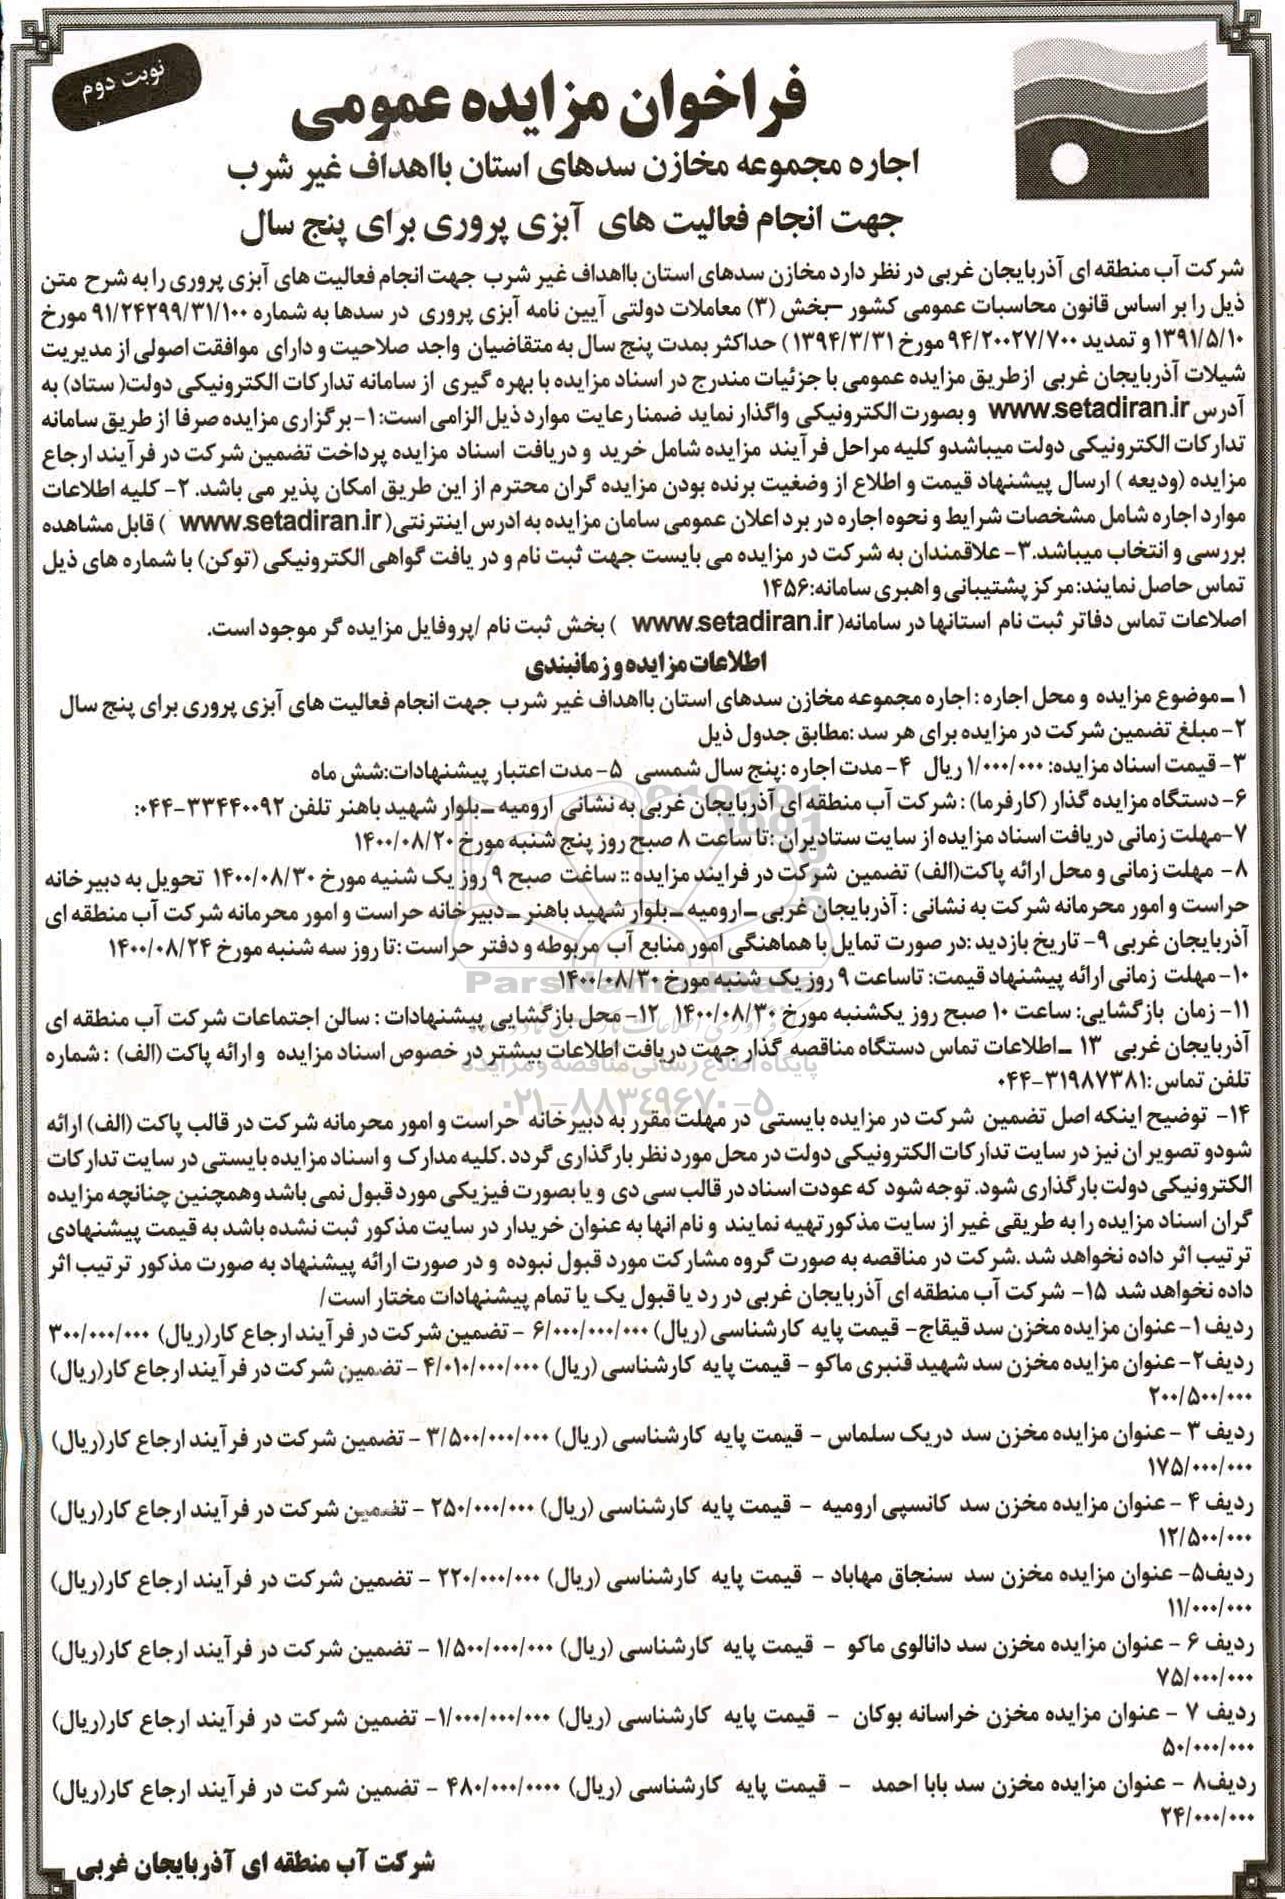 نوبت دوم
فراخوان مزایده عمومی
اجاره مجموعه مخازن سدهای استان بااهداف غیر شرب
جهت انجام فعالیت های آبزی پروری برای پنج سال
شرکت آب منطقه ای آذربایجان غربی در نظر دارد مخازن سدهای استان بااهداف غیر شرب جهت انجام فعالیت های آبزی پروری را به شرح متن
ذیل را بر اساس قانون محاسبات عمومی کشور –بخش (۳) معاملات دولتی آیین نامه آبزی پروری در سدها به شماره ۹۱/۲۴۲۹۹/۳۱/۱۰۰ مورخ
۱۳۹۱/۵/۱۰ و تمدید ۹۴/۲۰۰۲۷/۷۰۰ مورخ ۱۳۹۴/۳/۳۱ ) حداکثر بمدت پنج سال به متقاضیان واجد صلاحیت و دارای موافقت اصولی از مدیریت
شیلات آذربایجان غربی ازطریق مزایده عمومی با جزئیات مندرج در اسناد مزایده با بهره گیری از سامانه تدارکات الکترونیکی دولت( ستاد) به
آدرس www.setadiran.ir و بصورت الکترونیکی واگذار نماید ضمنا رعایت موارد ذیل الزامی است:۱- برگزاری مزایده صرفا از طریق سامانه
تدارکات الکترونیکی دولت میباشدو کلیه مراحل فرآیند مزایده شامل خرید و دریافت اسناد مزایده پرداخت تضمین شرکت در فرآیند ارجاع
مزایده (ودیعه ) ارسال پیشنهاد قیمت و اطلاع از وضغیت برنده بودن مزایده گران محترم از این طریق امکان پذیر می باشد. ۲- کلیه اطلاعات
موارد اجاره شامل مشخصات شرایط و نحوه اجاره در برد اعلان عمومی سامان مزایده به ادرس اینترنتی( www.setadiran.ir ) قابل مشاهده
بررسی و انتخاب میباشد.۳- علاقمندان به شرکت در مزایده می بایست جهت ثبت نام و در یافت گواهی الکترونیکی (توکن) با شماره های ذیل
تماس حاصل نمایند:مرکز پشتیبانی و اهبری سامانه:۱۴۵۶
اصلاعات تماس دفاتر ثبت نام استانها در سامانه( www.setadiran.ir ) بخش ثبت نام /پروفایل مزایده گر موجود است.
اطلاعات مزایده و زمانبندی
۱ـ موضوع مزایده و محل اجاره : اجاره مجموعه مخازن سدهای استان بااهداف غیر شرب جهت انجام فعالیت های آبزی پروری برای پنج سال
۲- مبلغ تضمین شرکت در مزایده برای هر سد :مطابق جدول ذیل
۳- قیمت اسناد مزایده: ۱/۰۰۰/۰۰۰ ریال ۴- مدت اجاره :پنج سال شمسی ۵- مدت اعتبار پیشنهادات:شش ماه
۶- دستگاه مزایده گذار (کارفرما) : شرکت آب منطقه ای آذربایجان غربی به نشانی ارومیه ـبلوار شهید باهنر تلفن ۳۳۴۴۰۰۹۲-۰۴۴:
۷-مهلت زمانی دریافت اسناد مزایده از سایت ستادیران :تا ساعت ۸ صبح روز پنج شنبه مورخ ۱۴۰۰/۰۸/۲۰
۸- مهلت زمانی و محل ارائه پاکت(الف) تضمین شرکت در فرایند مزایده :: ساعت صبح ۹ روز یک شنبه مورخ ۱۴۰۰/۰۸/۳۰ تحویل به دبیرخانه
حراست و امور محرمانه شرکت به نشانی : آذربایجان غربی ـارومیه ـبلوار شهید باهنر ـدبیرخانه حراست و امور محرمانه شرکت آب منطقه ای
آذربایجان غربی ۹- تاریخ بازدید :در صورت تمایل با هماهنگی امور منابع آب مربوطه و دفتر حراست :تا روز سه شنبه مورخ ۱۴۰۰/۰۸/۲۴
۱۰- مهلت زمانی ارائه پیشنهاد قیمت: تاساعت ۹ روز یک شنبه مورخ ۱۴۰۰/۰۸/۳۰
ParsNamadData
۱۱- زمان بازگشایی: ساعت ۱۰ صبح روز یکشنبه مورخ ۱۴۰۰/۰۸/۳۰ ۱۲- محل بازگشایی پیشنهادات : سالن اجتماعات شرکت آب منطقه ای
آذربایجان غربی ۱۳ ـ اطلاعات تماس دستگاه مناقصه گذار جهت دریافت اطلاعات بیشتر در خصوص اسناد مزایده و ارائه پاکت (الف) : شماره
پایگاه اطلاع رسانی مناقصه و مزایده
تلفن تماس :۳۱۹۸۷۳۸۱-۰۴۴
۰۲۱-۸۸۳۴۹۶۷۰-۵
۱۴- توضیح اینکه اصل تضمین شرکت در مزایده بایستی در مهلت مقرر به دبیرخانه حراست و امور محرمانه شرکت در قالب پاکت (الف) ارائه
شودو تصویر ان نیز در سایت تدارکات الکترونیکی دولت در محل مورد نظر بارگذاری گردد .کلیه مدارک و اسناد مزایده بایستی در سایت تدارکات
الکترونیکی دولت بارگذاری شود. توجه شود که عودت اسناد در قالب سی دی و یا بصورت فیزیکی مورد قبول نمی باشد وهمچنین چنانچه مزایده
گران اسناد مزایده را به طریقی غیر از سایت مذکورتهیه نمایند و نام انها به عنوان خریدار در سایت مذکور ثبت نشده باشد به قیمت پیشنهادی
ترتیب اثر داده نخواهد شد .شرکت در مناقصه به صورت گروه مشارکت مورد قبول نبوده و در صورت ارائه پیشنهاد به صورت مذکور ترتیب اثر
داده نخواهد شد ۱۵- شرکت آب منطقه ای آذربایجان غربی در رد یا قبول یک یا تمام پیشنهادات مختار است/
ردیف ۱- عنوان مزایده مخزن سد قیقاج- قیمت پایه کارشناسی (ریال) ۶/۰۰۰/۰۰۰/۰۰۰ - تضمین شرکت در فرآیند ارجاع کار(ریال) ۳۰۰/۰۰۰/۰۰۰
ردیف۲- عنوان مزایده مخزن سد شهید قنبری ماکو - قیمت پایه کارشناسی (ریال) ۴/۰۱۰/۰۰۰/۰۰۰ - تضمین شرکت در فرآیند ارجاع کار(ریال)
۲۰۰/۵۰۰/۰۰۰
ردیف ۳ - عنوان مزایده مخزن سد دریک سلماس - قیمت پایه کارشناسی (ریال) ۳/۵۰۰/۰۰۰/۰۰۰ - تضمین شرکت در فرآیند ارجاع کار(ریال)
۱۷۵/۰۰۰/۰۰۰
ردیف ۴ - عنوان مزایده مخزن سد کانسپی ارومیه - قیمت پایه کارشناسی (ریال) ۲۵۰/۰۰۰/۰۰۰ - تضمین شرکت در فرآیند ارجاع کار(ریال)
۱۲/۵۰۰/۰۰۰
ردیف۵- عنوان مزایده مخزن سد سنجاق مهاباد - قیمت پایه کارشناسی (ریال) ۲۲۰/۰۰۰/۰۰۰ - تضمین شرکت در فرآیند ارجاع کار(ریال)
۱۱/۰۰۰/۰۰۰
ردیف ۶ - عنوان مزایده مخزن سد دانالوی ماکو - قیمت پایه کارشناسی (ریال) ۱/۵۰۰/۰۰۰/۰۰۰ - تضمین شرکت در فرآیند ارجاع کار(ریال)
۷۵/۰۰۰/۰۰۰
ردیف ۷ - عنوان مزایده مخزن خراسانه بوکان - قیمت پایه کارشناسی (ریال) ۱/۰۰۰/۰۰۰/۰۰۰- تضمین شرکت در فرآیند ارجاع کار(ریال)
۵۰/۰۰۰/۰۰۰
ردیف۸ - عنوان مزایده مخزن سد بابا احمد - قیمت پایه کارشناسی (ریال) ۴۸۰/۰۰۰/۰۰۰۰ - تضمین شرکت در فرآیند ارجاع کار(ریال)
۲۴/۰۰۰/۰۰۰
شرکت آب منطقه ای آذربایجان غربی